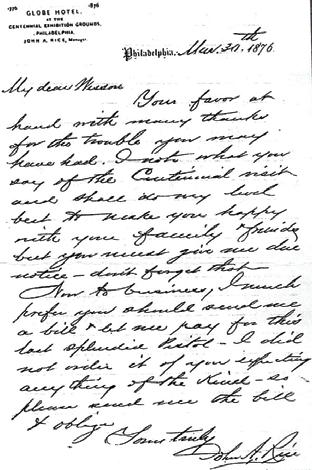 1776 1876
GLOBE HOTEL.
AT THE
CENTENNIAL EXHIBITION GROUNDS,
PHILADELPHIA.
JOHN A. RICE, Manager.
Philadelphia, Mar. 30th 1876
My dear Wesson
Your favor at
hand with many thanks
for the trouble you may
have had. I note what you
say of the Centennial visit
and shall do my level
best to make you happy
with your family & friends
but you must give me due
notice - don't forget that
Now to business, I much
prefer you should send me
a bill & let me pay for this
last splendid Pistol - I did
not order it of you expecting
anything of the kind - so
please send me the bill
& oblige
Yours truly
John A. Rice